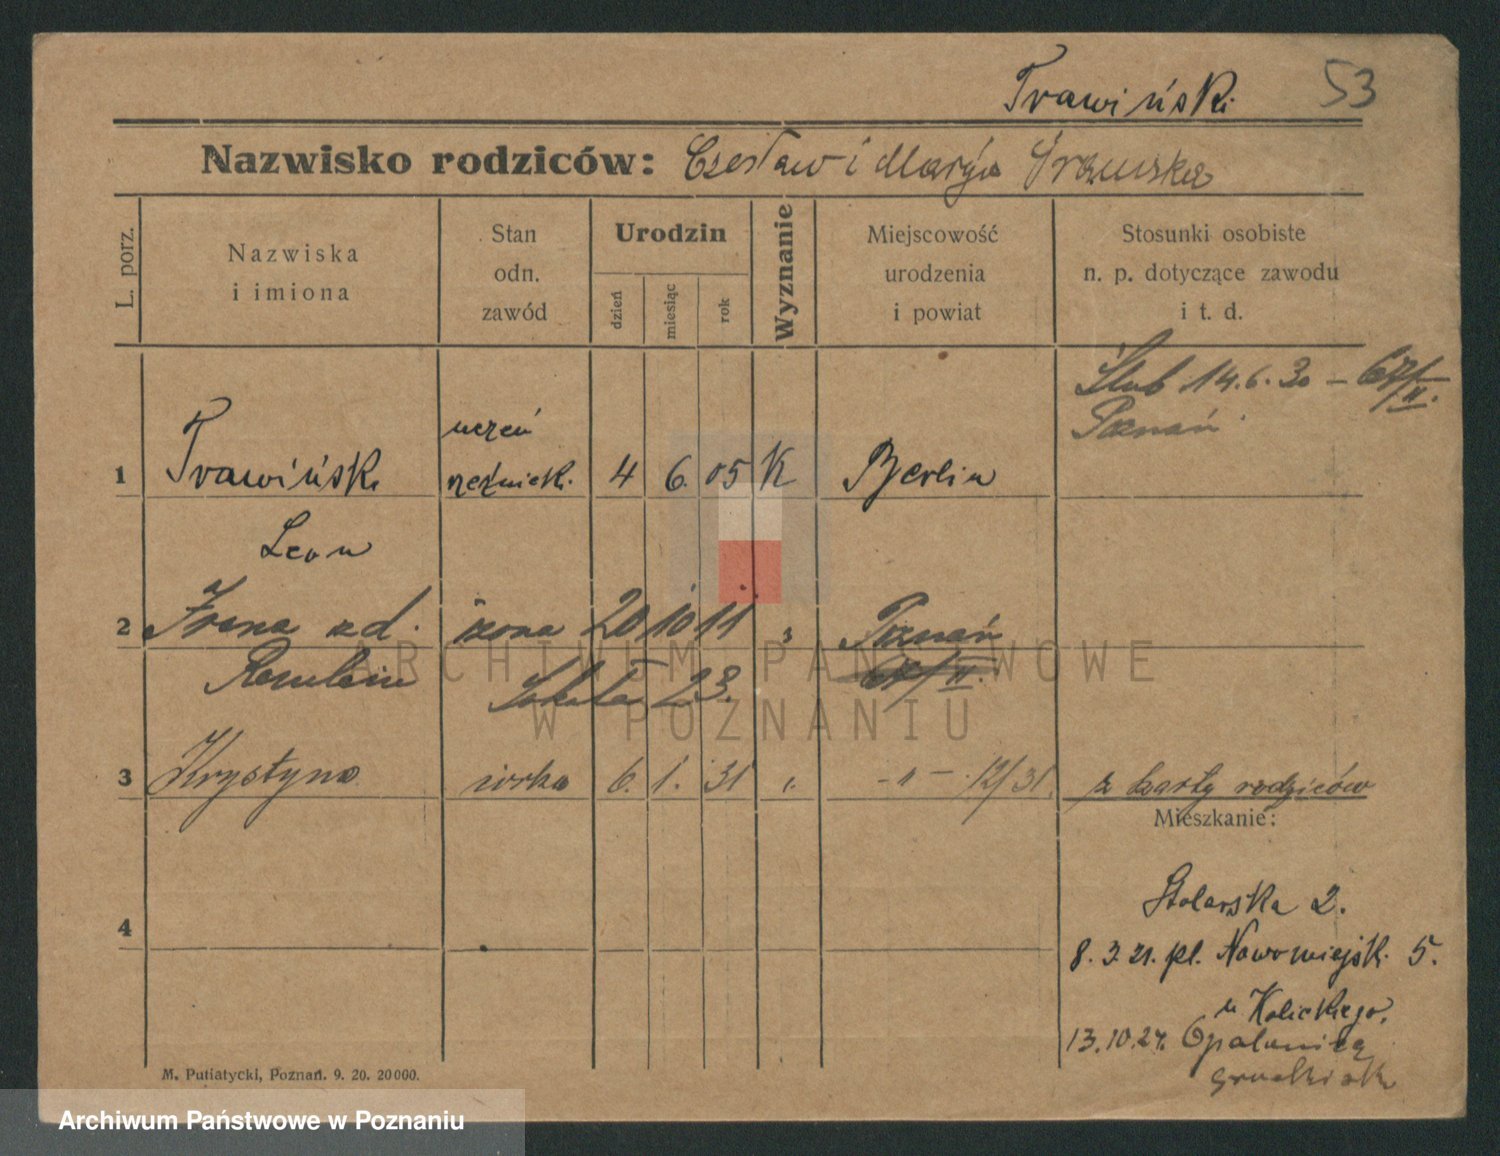 Trawiński 53
Nazwisko rodziców: Czesław i Marja
L. porz.
Nazwiska
i imiona
Stan
odn.
zawód
Urodzin
dzień
miesiąc
rok
Wyznanie
Miejscowość
urodzenia
i powiat
Stosunki osobiste
n. p. dotyczące zawodu
i t. d.
Ślub 14.6.30 – 67/II.
Poznań
1 Trawiński uczeń rzeźnick. 4 6. 05 K Berlin
Leon
2 Irena zd. żona 20 10 11 „ Poznań
67/II.
3 Krystyna córka 6. 1. 31 „ – „ – 12/31. z karty rodziców
Mieszkanie:
4
Stolarska 2.
8.3.21. pl. Nowomiejsk. 5.
u
13.10.24. Opalenica
M. Putiatycki, Poznań. 9. 20. 20000.
ARCHIWUM PAŃSTWOWE
W POZNANIU
Archiwum Państwowe w Poznaniu